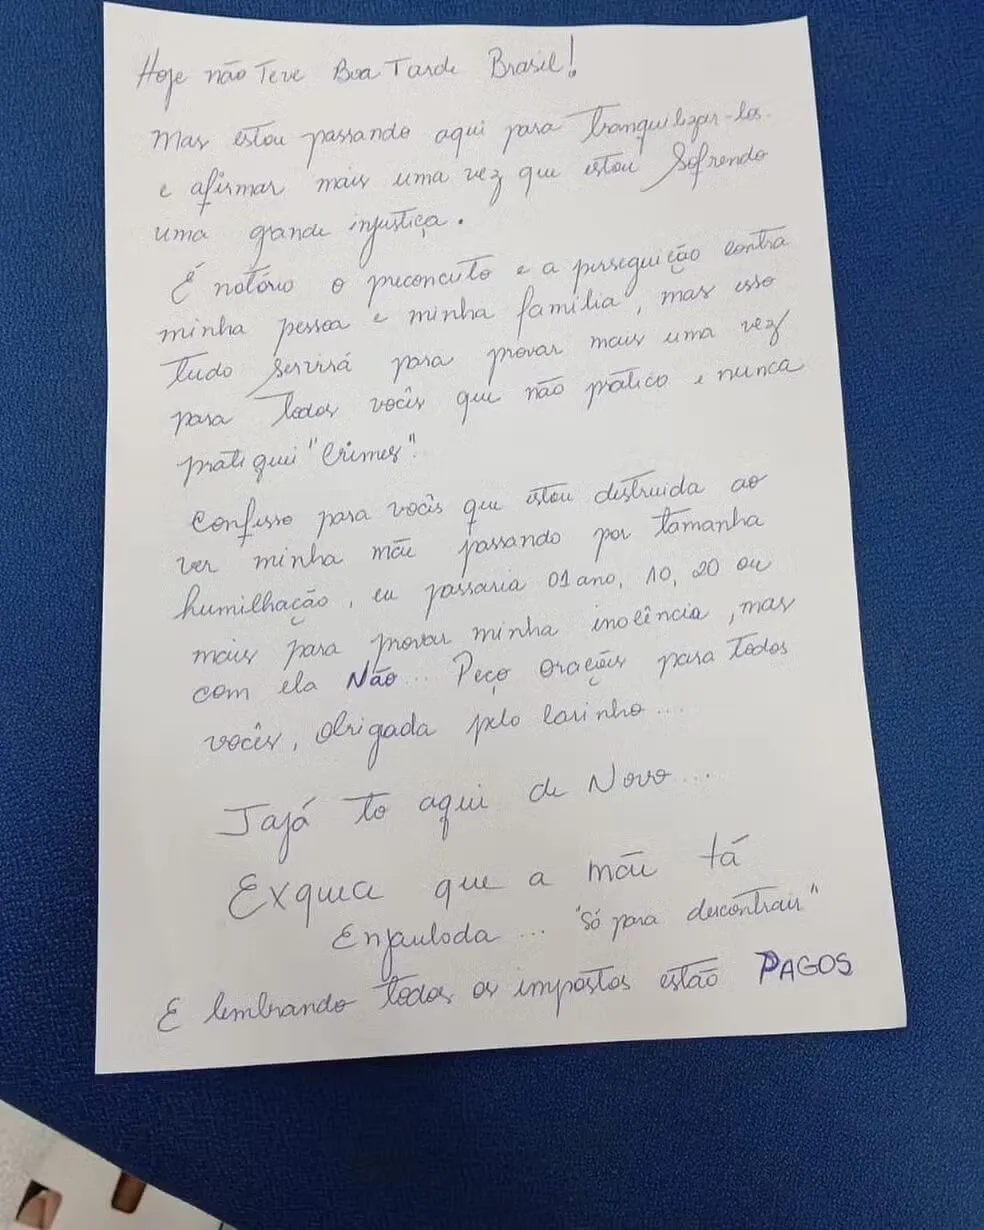 Hoje não Teve Boa Tarde Brasil!
Mas estou passando aqui para Tranquilizar-los
e afirmar mais uma vez que estou Sofrendo
uma grande injustiça.
É notório o preconceito e a perseguição contra
minha pessoa e minha família, mas esso
Tudo Servirá para provar mais uma vez
para Todos vocês que não pratico e nunca
pratiquei "Crimes".
Confesso para vocês que estou destruida ao
ver minha mãe passando por tamanha
humilhação, eu passaria 01 ano, 10, 20 ou
mais para provar minha inolência, mas
com ela Não... Peço orações para todos
vocês, Obrigada pelo Carinho...
Jajá to aqui de Novo...
Exquia que a mãe tá
Enjauloda... "Só para descontrair"
E lembrando todos os impostos estão PAGOS